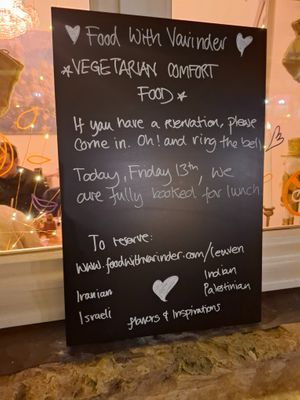 Food With Varinder
*VEGETARIAN COMFORT
FOOD*
If you have a reservation, please
Come in. Oh! and ring the bell
Today, Friday 13th, we
are fully booked for lunch
To reserve:
www.foodwithvarinder.com/leuven
Iranian
Indian
Israeli
Palestinian
flavors & Inspirations